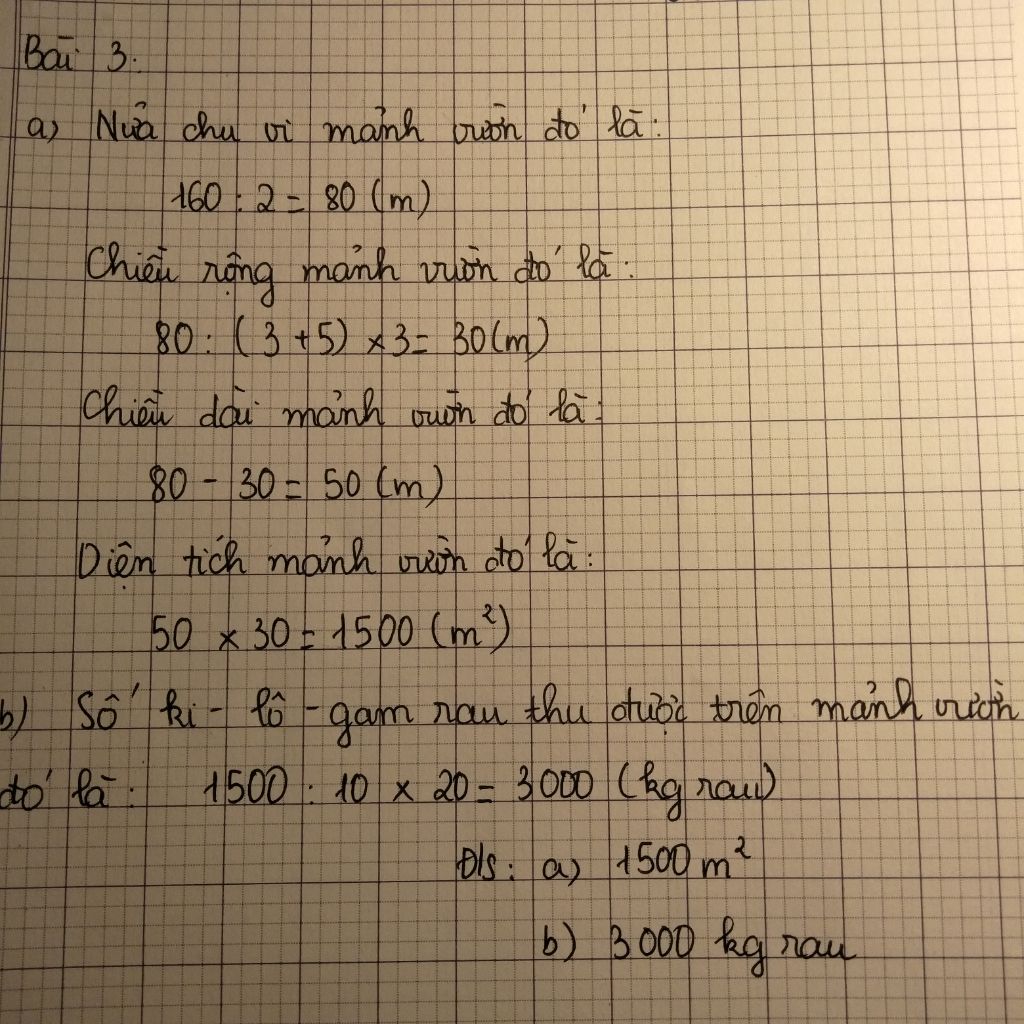 Bài 3:
a) Nửa chu vi mảnh vườn đó là:
160 : 2 = 80 (m)
Chiều rộng mảnh vườn đó là:
80 : (3 + 5) × 3 = 30 (m)
Chiều dài mảnh vườn đó là:
80 - 30 = 50 (m)
Diện tích mảnh vườn đó là:
50 × 30 = 1500 (m²)
b) Số ki-lô-gam rau thu được trên mảnh vườn
đó là: 1500 : 10 × 20 = 3000 (kg rau)
Đ/s: a) 1500 m²
b) 3000 kg rau